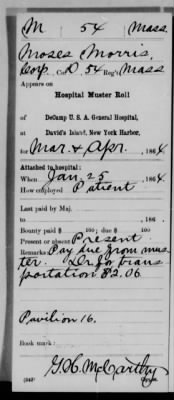 M 54 Mass.
Moses Morris,
Corp, Co. D, 54 Reg't Mass
Appears on
Hospital Muster Roll
of DeCamp U. S. A. General Hospital,
at David's Island, New York Harbor,
for Mar & Apr, 1864.
Attached to hospital:
When Jan 25, 1864.
How employed Patient
Last paid by Maj.
to , 186 .
Bounty paid $ 100; due $ 100
Present or absent Present
Remarks: Pay due from mus-
ter. Dr. for trans-
portation $2.06
Pavilion 16.
Book mark:
G. C. McCarthy
(343) Copyist.